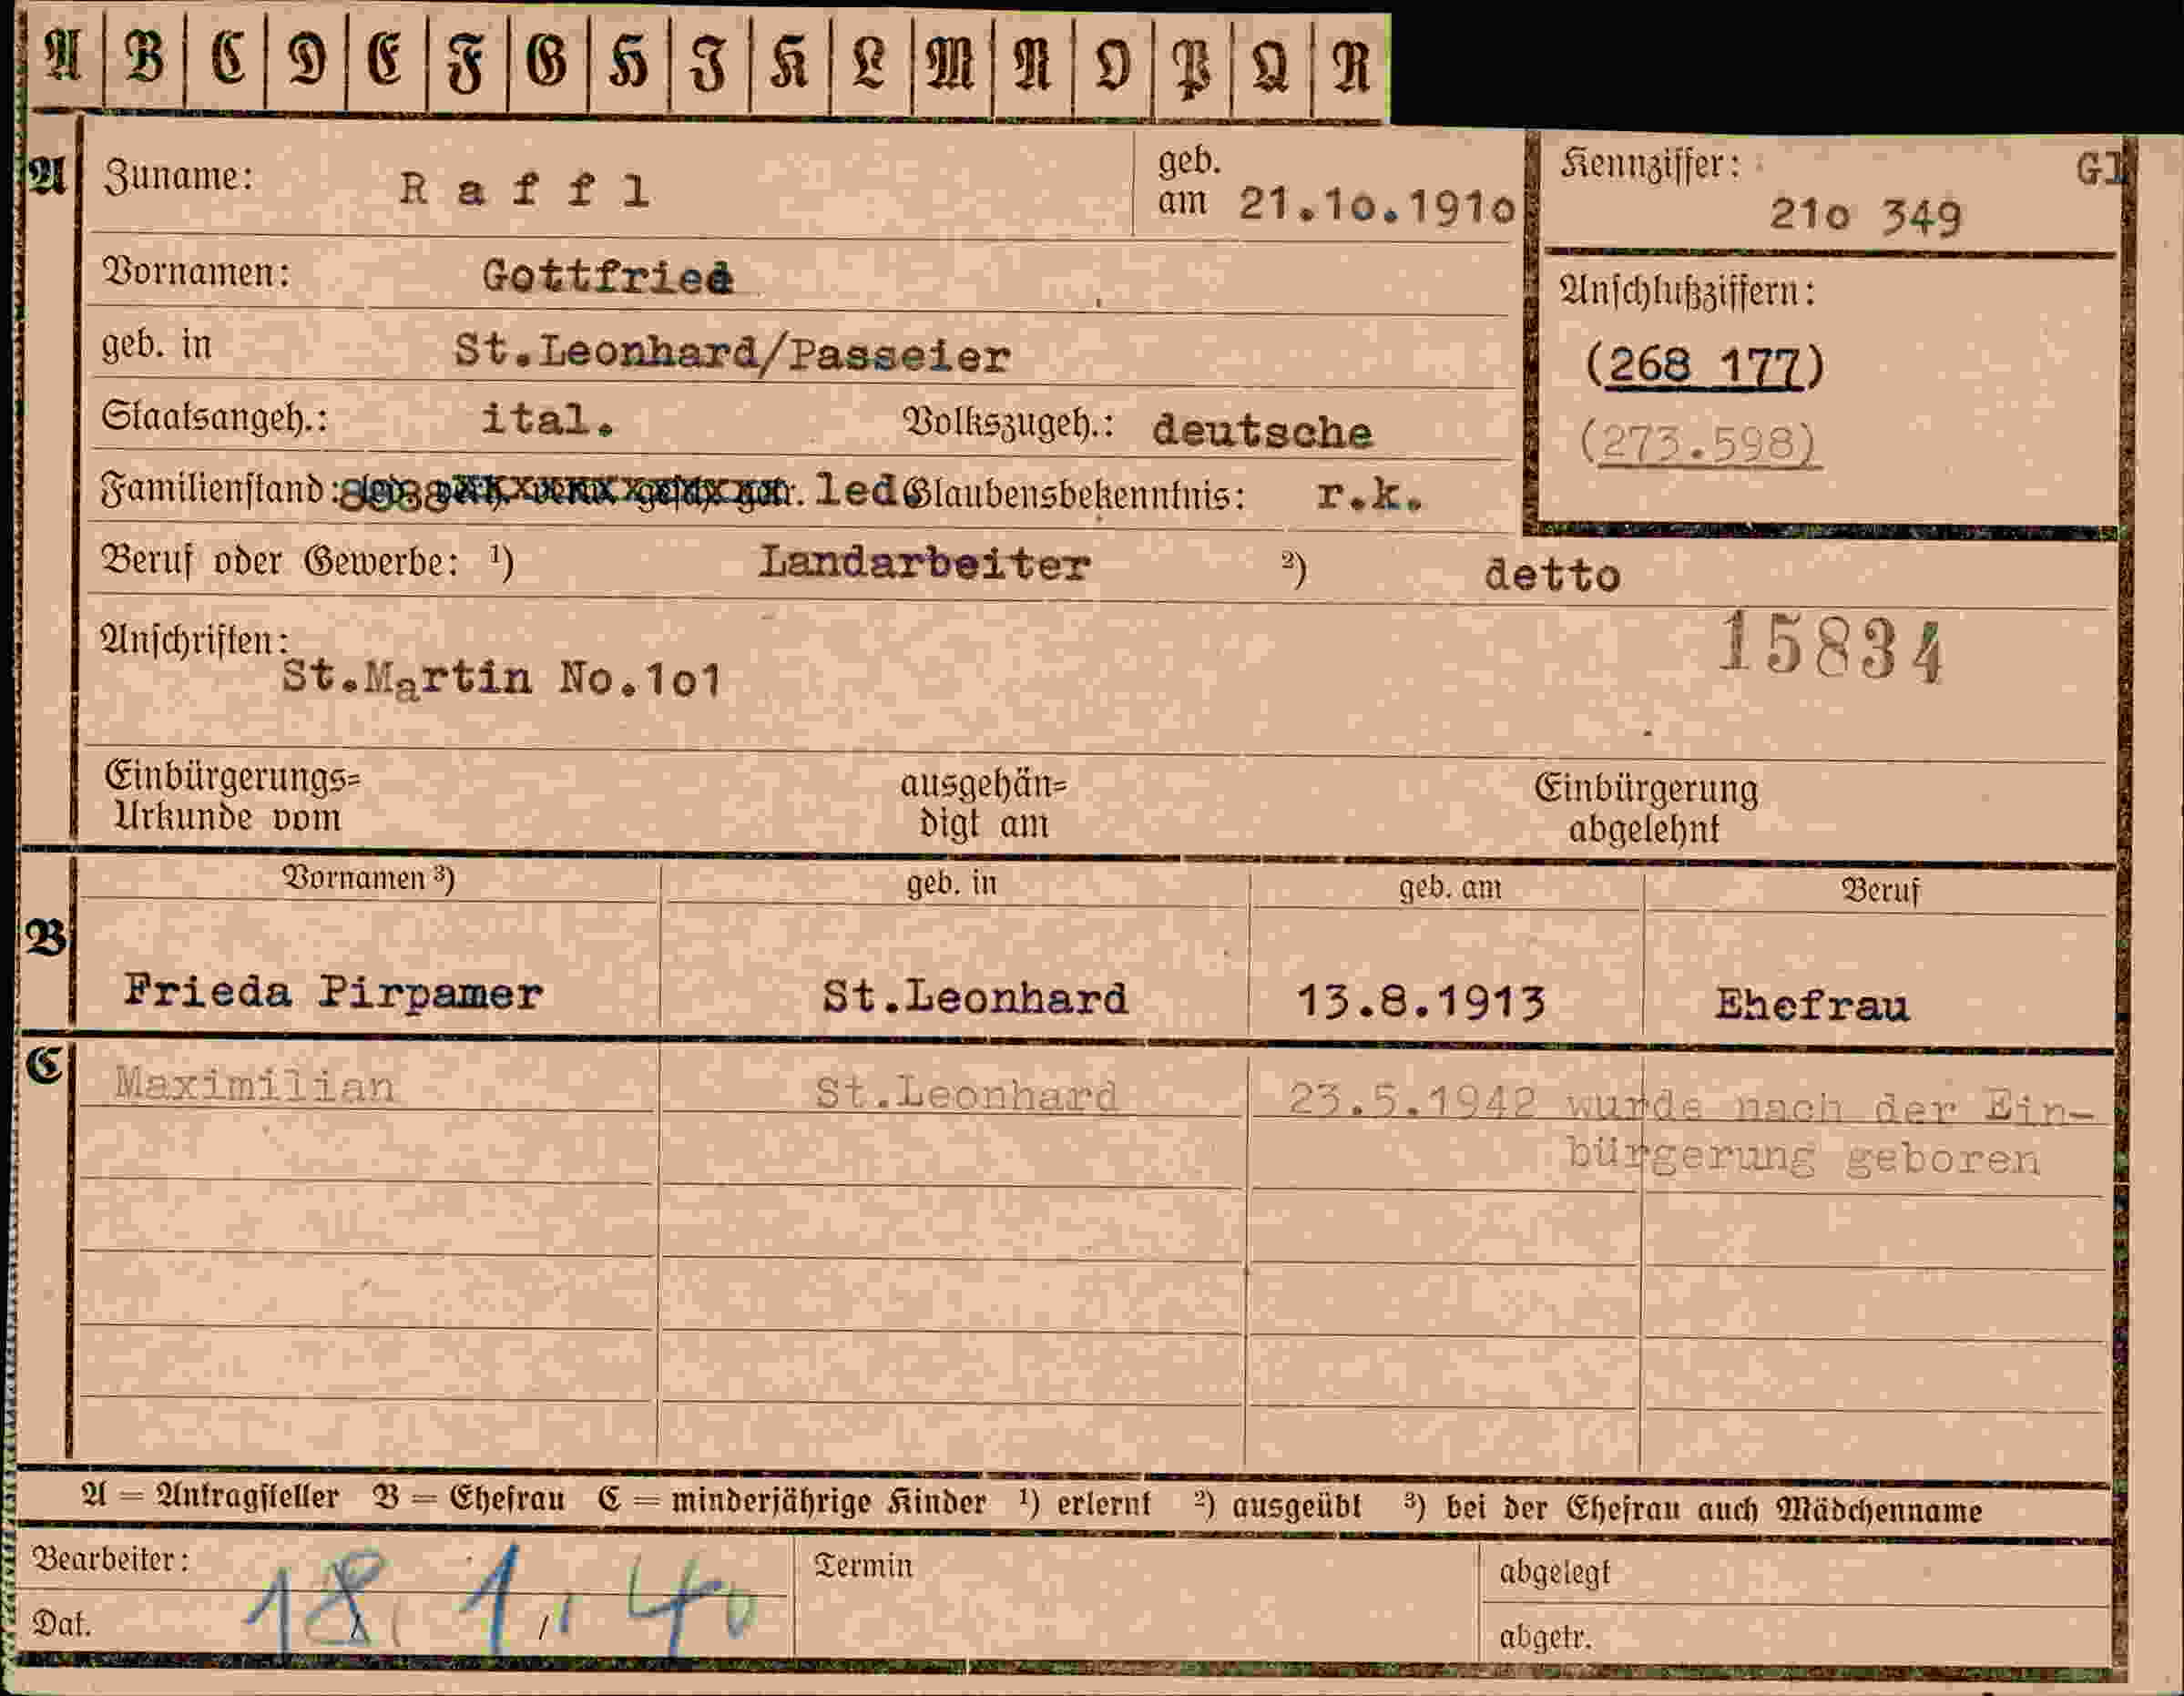 A B C D E F G H I K L M N O P Q R
A Zuname: Raffl geb. am 21.1o.191o Kennziffer: 21o 349 Gl
Vornamen: Gottfried Anschlußziffern:
geb. in St.Leonhard/Passeier (268 177)
Staatsangeh.: ital. Volkszugeh.: deutsche (273.598)
Familienstand: led Glaubensbekenntnis: r.k.
Beruf oder Gewerbe: ¹) Landarbeiter ²) detto
Anschriften: 15834
St.Martin No.1o1
Einbürgerungs= ausgehän= Einbürgerung
Urkunde vom digt am abgelehnt
Vornamen ³) geb. in geb. am Beruf
B Frieda Pirpamer St.Leonhard 13.8.1913 Ehefrau
C Maximilian St.Leonhard 23.5.1942 wurde nach der Ein-
bürgerung geboren
A = Antragsteller B = Ehefrau C = minderjährige Kinder ¹) erlernt ²) ausgeübt ³) bei der Ehefrau auch Mädchenname
Bearbeiter: Termin abgelegt
Dat. 18. 1. 40 abgetr.